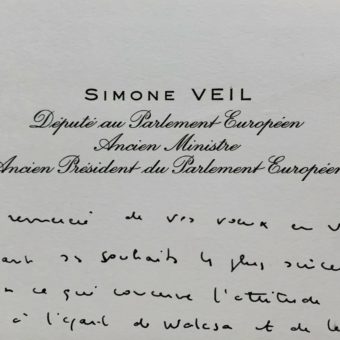 SIMONE VEIL
Député au Parlement Européen
Ancien Ministre
Ancien Président du Parlement Européen
remercie de vos voeux en v
ses souhaits les plus sincè
ce qui concerne l'attitude
à l'égard de Walesa et de le